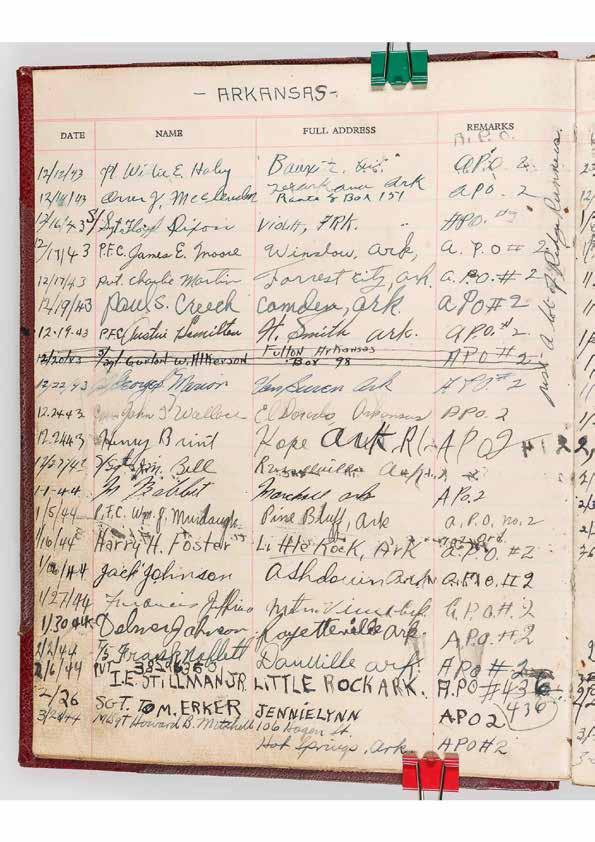 - ARKANSAS -
DATE NAME FULL ADDRESS REMARKS
A.P.O.
12/12/43 Willie E. A.P.O. 2
12/14/43 McClendon Texarkana Ark APO. 2
Route 8 Box 151
12/16/43 S/Sgt Floyd Dixon Viola, ARK. APO. #2
12/17/43 P.F.C. James E. Moore Winslow, Ark, A.P.O # 2
12/17/43 Pvt. Charlie Martin Forrest City, ark. A.P.O. # 2
12/19/43 Paul S. Creech Camden, ark. APO #2
12-19-43 P.F.C. Austin Hamilton Ft. Smith ark. APO.# 2
12/20/43 S/Sgt Gurton Wilkerson Fulton Arkansas APO #2
Box 98
12/22/43 George Marion Van Buren Ark APO #2
12.24.43 John T Wallace El Dorado, Arkansas APO. 2
12.24.43 Henry Brint Hope ark, R1 APO 2
12/27/43 Bell Russellville APO. 2
1-1-44 Babbit Marshall ark APO. 2
1/5/44 P.F.C. Wm. J. Murdaugh Pine Bluff, Ark a.P.O. no. 2
1/16/44 Harry H. Foster Little Rock, Ark A.P.O. #2
Jack Johnson Ashdown Ark A.P.O. II 2
1/27/44 Francis Mtn View G.P.O.#. 2
1/30/44 Delmer Johnson Fayetteville ark. A.P.O. #2
2/2/44 T/5 Frank Danville ark APO # 2
2/6/44 PVT
I.E. STILLMAN JR. LITTLE ROCK ARK. A.PO #436
2/26 SGT. TOM. ERKER JENNIELYNN APO 2 436
3/20/44 M/Sgt Howard B. Mitchell 106 Hagen St. APO #2
Hot Springs, Ark
Just a lot of Ridge Runners.